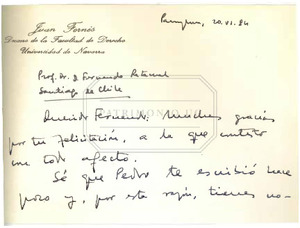 Juan Fornés
Decano de la Facultad de Derecho
Universidad de Navarra
Pamplona, 20.VI.84
Prof. Dr. D. Fernando Retamal
Santiago de Chile
Querido Fernando: muchas gracias
por tu felicitación, a la que contesto
con todo afecto.
Sé que Pedro te escribió hace
poco y, por esta razón, tienes no-